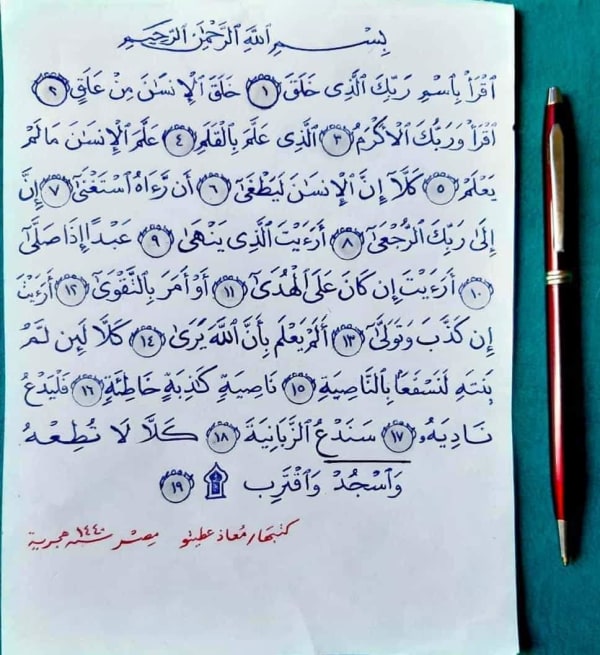 بِسْمِ ٱللَّهِ ٱلرَّحْمَٰنِ ٱلرَّحِيمِ
ٱقْرَأْ بِٱسْمِ رَبِّكَ ٱلَّذِى خَلَقَ ١ خَلَقَ ٱلْإِنسَٰنَ مِنْ عَلَقٍ ٢
ٱقْرَأْ وَرَبُّكَ ٱلْأَكْرَمُ ٣ ٱلَّذِى عَلَّمَ بِٱلْقَلَمِ ٤ عَلَّمَ ٱلْإِنسَٰنَ مَا لَمْ
يَعْلَمْ ٥ كَلَّآ إِنَّ ٱلْإِنسَٰنَ لَيَطْغَىٰٓ ٦ أَن رَّءَاهُ ٱسْتَغْنَىٰٓ ٧ إِنَّ
إِلَىٰ رَبِّكَ ٱلرُّجْعَىٰٓ ٨ أَرَءَيْتَ ٱلَّذِى يَنْهَىٰ ٩ عَبْدًا إِذَا صَلَّىٰٓ
١٠ أَرَءَيْتَ إِن كَانَ عَلَى ٱلْهُدَىٰٓ ١١ أَوْ أَمَرَ بِٱلتَّقْوَىٰٓ ١٢ أَرَءَيْتَ
إِن كَذَّبَ وَتَوَلَّىٰٓ ١٣ أَلَمْ يَعْلَم بِأَنَّ ٱللَّهَ يَرَىٰ ١٤ كَلَّا لَئِن لَّمْ
يَنتَهِ لَنَسْفَعًۢا بِٱلنَّاصِيَةِ ١٥ نَاصِيَةٍ كَٰذِبَةٍ خَاطِئَةٍ ١٦ فَلْيَدْعُ
نَادِيَهُۥ ١٧ سَنَدْعُ ٱلزَّبَانِيَةَ ١٨ كَلَّا لَا تُطِعْهُ
وَٱسْجُدْ وَٱقْتَرِب ۩ ١٩
كتبها / معاذ عطيتو مصر سنة ١٤٤٠ هجرية